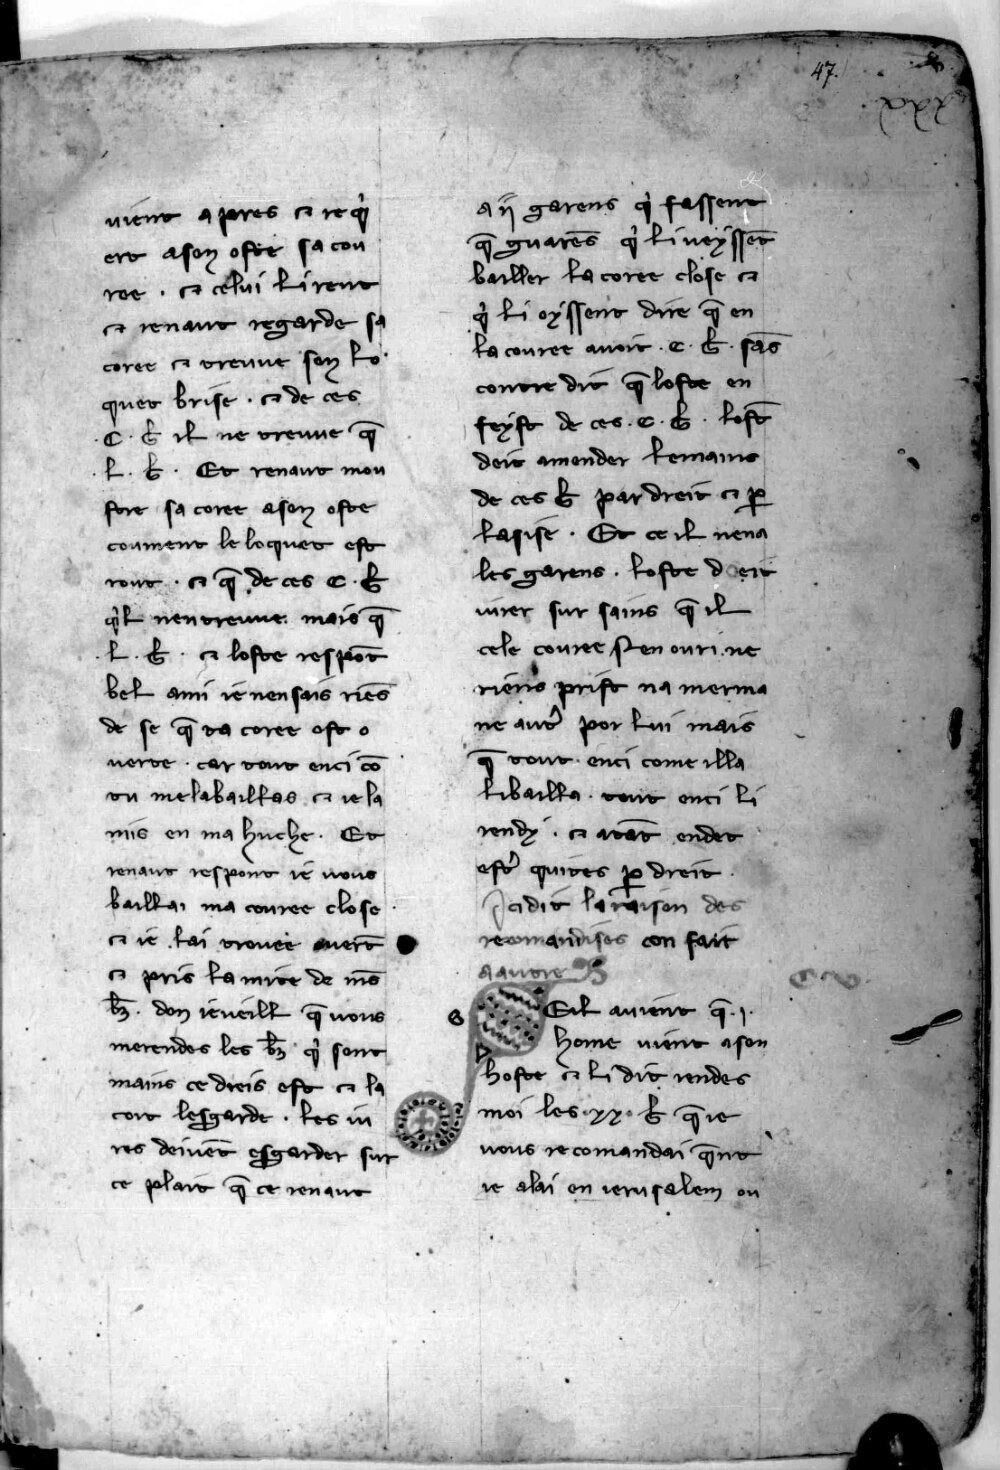 47.
xxxx
uient apres ⁊ reqͥ
ert ason oste sa cou
ree · ⁊ celui li rent
⁊ renaut regarde sa
coree ⁊ treuue son lo
quet brise · ⁊ de ces
·C· b̵ il ne treuue q̄
·L· b̵ · Et renaut mou
stre sa coree ason oste
coument le loquet est
rout · ⁊ q̄ de ces C · b̵
qͥl nen treuue mais q̄
·L· b̵ · ⁊ loste respōt
bel ami ie nen sais riēs
de se q̄ ta coree est o
uerte · car tout enci cō
tu me la baillas ⁊ ie la
mis en ma huche · Et
renaut respont ie uous
baillai ma couree close ·
⁊ ie lai trouee ouert̄
⁊ pris la mite de mēs
bz̄ · don ie ueill q̄ uous
merendes les bz̄ qͥ sont
mains ce dreis est ⁊ la
cort lesgarde · les iu
res deiuēt esgarder sur
ce plait q̄ ce renaut
a ij garens qͥ fassent
q̄ guarēs qͥ li ueyssēt
bailler la coree close ⁊
qͥ li oyssent dire q̄ en
la couree auoit · C · b̵ · sās
contre dit q̄ loste en
feyst de ces · C · b̵ · lost̄
deit amender lemains
de ces b̵ par dreit ⁊ ꝑ
lasise · Et ce il nena
les garens · loste deit
iurer sur sains q̄ il
cele couree nen ouri ne
riens prist na merma
ne autͬ por lui mais
q̄ tout enci come illa
li bailla · tout enci li
rendy · ⁊ atāt endet
estͬ quites ꝑ dreit ·
Ici dit la raison des
recomandises con fait
a autre
cv
S EIL auient q̄ · i ·
home uient ason
hoste ⁊ li dit rendes
moi les · xx · b̵ q̄ ie
uous recomandai q̄nt
ie alai en ierusalem ou